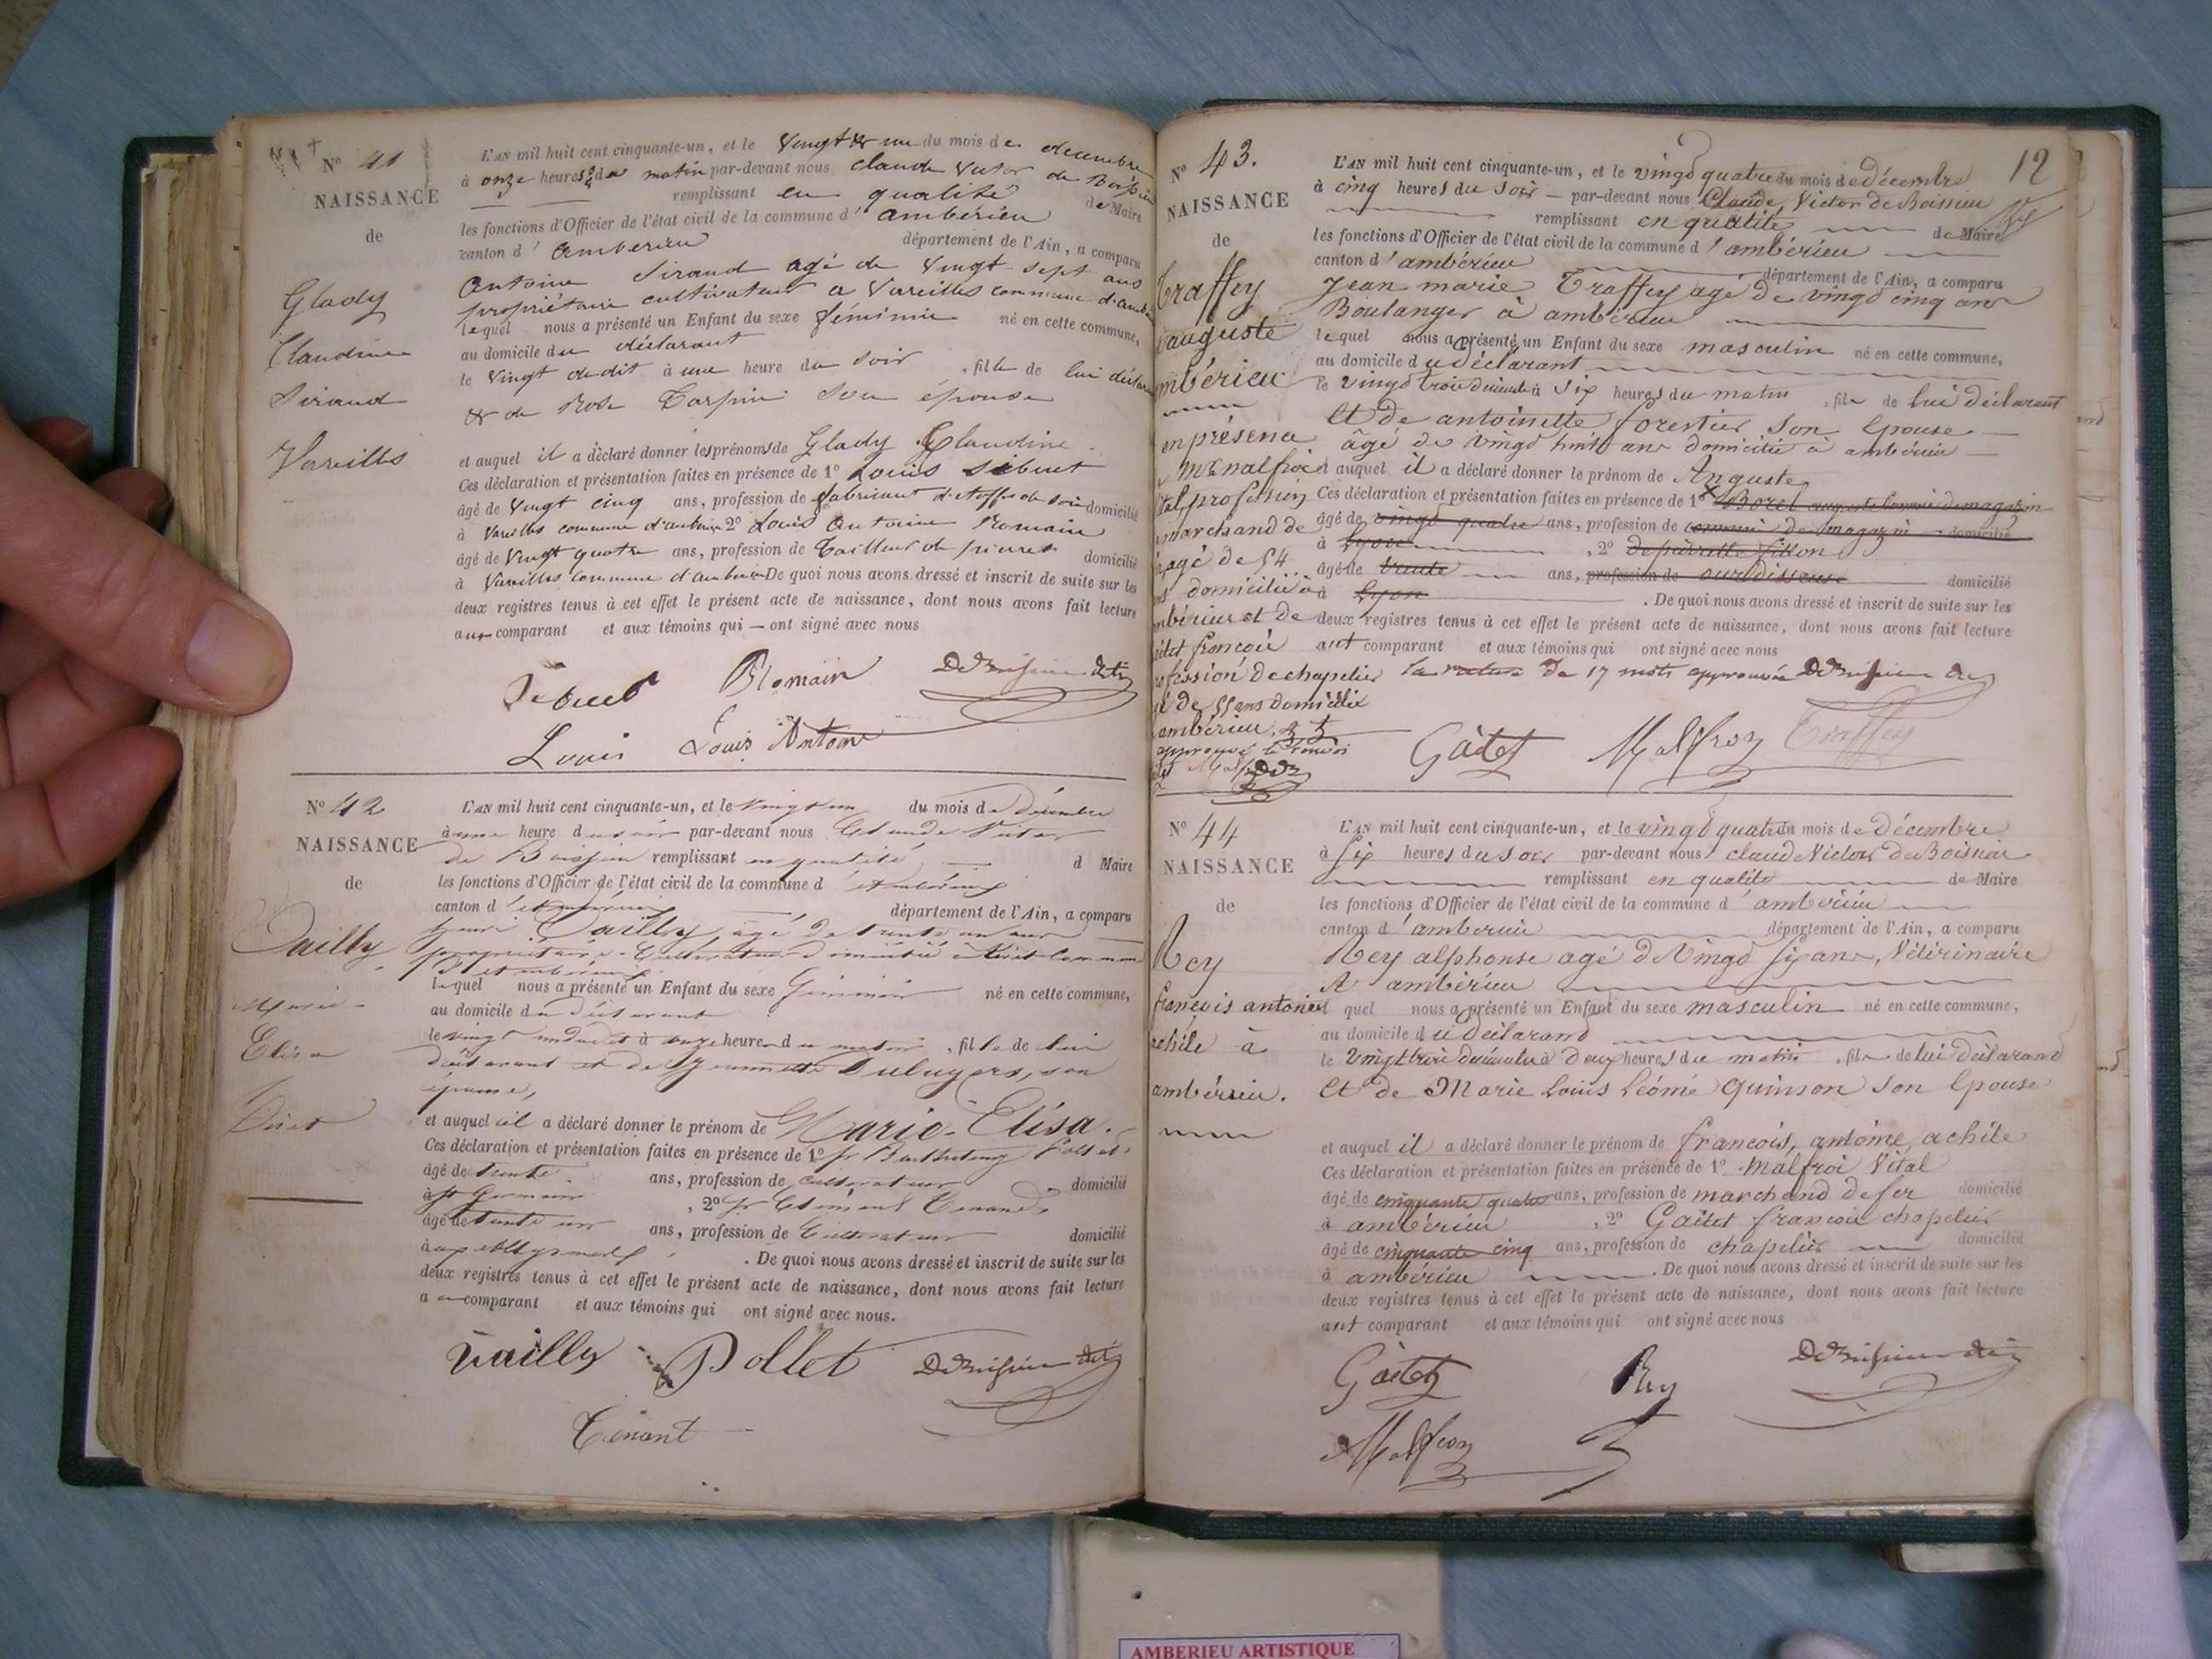 N° 41
NAISSANCE
de
Glady
Claudine
Siraud
Vareilles
L'AN mil huit cent cinquante-un, et le Vingt & un du mois de decembre
à onze heures du matin par-devant nous claude Victor de Boissieu
remplissant en qualité de Maire
les fonctions d'Officier de l'état civil de la commune d' ambérieu
canton d' Amberieu département de l'Ain, a comparu
Antoine Siraud agé de Vingt-sept ans
propriétaire cultivateur a Vareilles commune d'amb
lequel nous a présenté un Enfant du sexe féminin né en cette commune,
au domicile du déclarant
le Vingt du dit à une heure du soir, fille de lui déclar
& de Rose Carpin son épouse
et auquel il a déclaré donner les prénoms de Glady Claudine
Ces déclaration et présentation faites en présence de 1° Louis sibuet
âgé de Vingt cinq ans, profession de fabricant d'etoffes de soie domicilié
à Vareilles commune d'amberieu 2° Louis Antoine Romain
âgé de Vingt quatre ans, profession de Tailleur de pierres domicilié
à Vareilles commune d'amberieu De quoi nous avons dressé et inscrit de suite sur les
deux registres tenus à cet effet le présent acte de naissance, dont nous avons fait lecture
aux comparant et aux témoins qui — ont signé avec nous
Sibuet Romain DeBoissieu
Louis Louis Antoine
N° 42
NAISSANCE
de
Vailly
Marie
Elisa
L'AN mil huit cent cinquante-un, et le vingt un du mois de décembre
à une heure du soir par-devant nous Claude Victor
de Boissieu remplissant en qualité d Maire
les fonctions d'Officier de l'état civil de la commune d' Ambérieux
canton d' Ambérieux département de l'Ain, a comparu
Vailly, âgé de trente un ans
propriétaire Cultivateur domicilié à commune
d'Ambérieux
lequel nous a présenté un Enfant du sexe féminin né en cette commune,
au domicile du déclarant
le vingt un dudit à onze heures du matin, fille de lui
déclarant et de Jeannette son
épouse,
et auquel il a déclaré donner le prénom de Marie-Elisa.
Ces déclaration et présentation faites en présence de 1° Sr Barthelemy Pollet
âgé de trente ans, profession de cultivateur domicilié
à St Germain, 2° Sr Clément Tenand,
âgé de trente un ans, profession de Cultivateur domicilié
à . De quoi nous avons dressé et inscrit de suite sur les
deux registres tenus à cet effet le présent acte de naissance, dont nous avons fait lecture
au comparant et aux témoins qui ont signé avec nous.
Vailly Pollet DeBoissieu
Tenant
12
N° 43.
NAISSANCE
de
Traffey
auguste
mbérieu
en présence
de Mr malfroi
Vital profession
marchand de
agé de 54
domicilié à
mbérieu et de
françois
ofession de chapelier
é de 55 ans domicilié
ambérieu.
approuvé le renvoi
L'AN mil huit cent cinquante-un, et le vingt quatre du mois de décembre
à cinq heures du soir — par-devant nous Claude, Victor de Boissieu
remplissant en qualité de Maire
les fonctions d'Officier de l'état civil de la commune d' ambérieu
canton d' ambérieu département de l'Ain, a comparu
Jean marie Traffey agé de vingt cinq ans
Boulanger à ambérieu
lequel nous a présenté un Enfant du sexe masculin né en cette commune,
au domicile du déclarant
le vingt trois décembre à six heures du matin, fils de lui déclarant
Et de antoinette forestier son Epouse
âgé de vingt huit ans domicilié à ambérieu
et auquel il a déclaré donner le prénom de Auguste
Ces déclaration et présentation faites en présence de 1° Borel auguste commis de magazin
âgé de vingt quatre ans, profession de commis de magazin domicilié
à Lyon, 2° depierrette fillon
âgé de trente ans, profession de ourdisseuse domicilié
à Lyon. De quoi nous avons dressé et inscrit de suite sur les
deux registres tenus à cet effet le présent acte de naissance, dont nous avons fait lecture
aut comparant et aux témoins qui ont signé avec nous
la rature de 17 mots approuvée DeBoissieu
Gàitet Malfroy Traffey
N° 44
NAISSANCE
de
Rey
francois antoine
achile à
ambérieu.
L'AN mil huit cent cinquante-un, et le vingt quatre du mois de décembre
à six heures du soir par-devant nous claude Victor de Boissieu
remplissant en qualité de Maire
les fonctions d'Officier de l'état civil de la commune d' ambérieu
canton d' amberieu département de l'Ain, a comparu
Rey alphonse agé de Vingt six ans, Vétérinaire
A ambérieu
lequel nous a présenté un Enfant du sexe masculin né en cette commune,
au domicile du déclarand
le vingt trois décembre à deux heures du matin, fils de lui déclarand
Et de Marie Louis Léonie Quinson son Epouse
et auquel il a déclaré donner le prénom de francois, antoine, achile
Ces déclaration et présentation faites en présence de 1° Malfroi Vital
âgé de cinquante quatre ans, profession de marchand de fer domicilié
à ambérieu, 2° Gaitet francois chapelier
âgé de cinquante cinq ans, profession de chapelier domicilié
à ambérieu. De quoi nous avons dressé et inscrit de suite sur les
deux registres tenus à cet effet le présent acte de naissance, dont nous avons fait lecture
aut comparant et aux témoins qui ont signé avec nous
Gàitet Rey DeBoissieu
Malfroy
AMBERIEU ARTISTIQUE